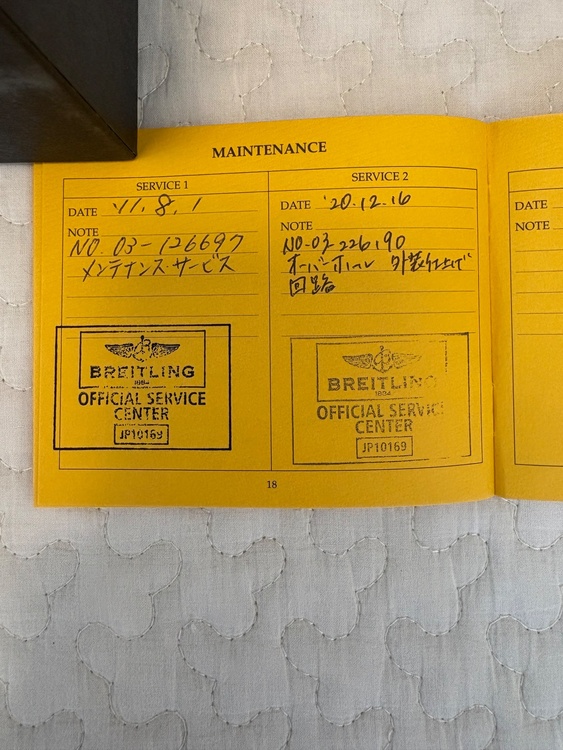 MAINTENANCE
SERVICE 1
DATE '11.8.1
NOTE
NO. 03-126697
メンテナンス.サービス
BREITLING
1884
OFFICIAL SERVICE
CENTER
JP10169
SERVICE 2
DATE '20.12.16
NOTE
NO-03-226190
オーバーホール 外装仕上げ
回路
BREITLING
1884
OFFICIAL SERVICE
CENTER
JP10169
18
DATE
NOTE